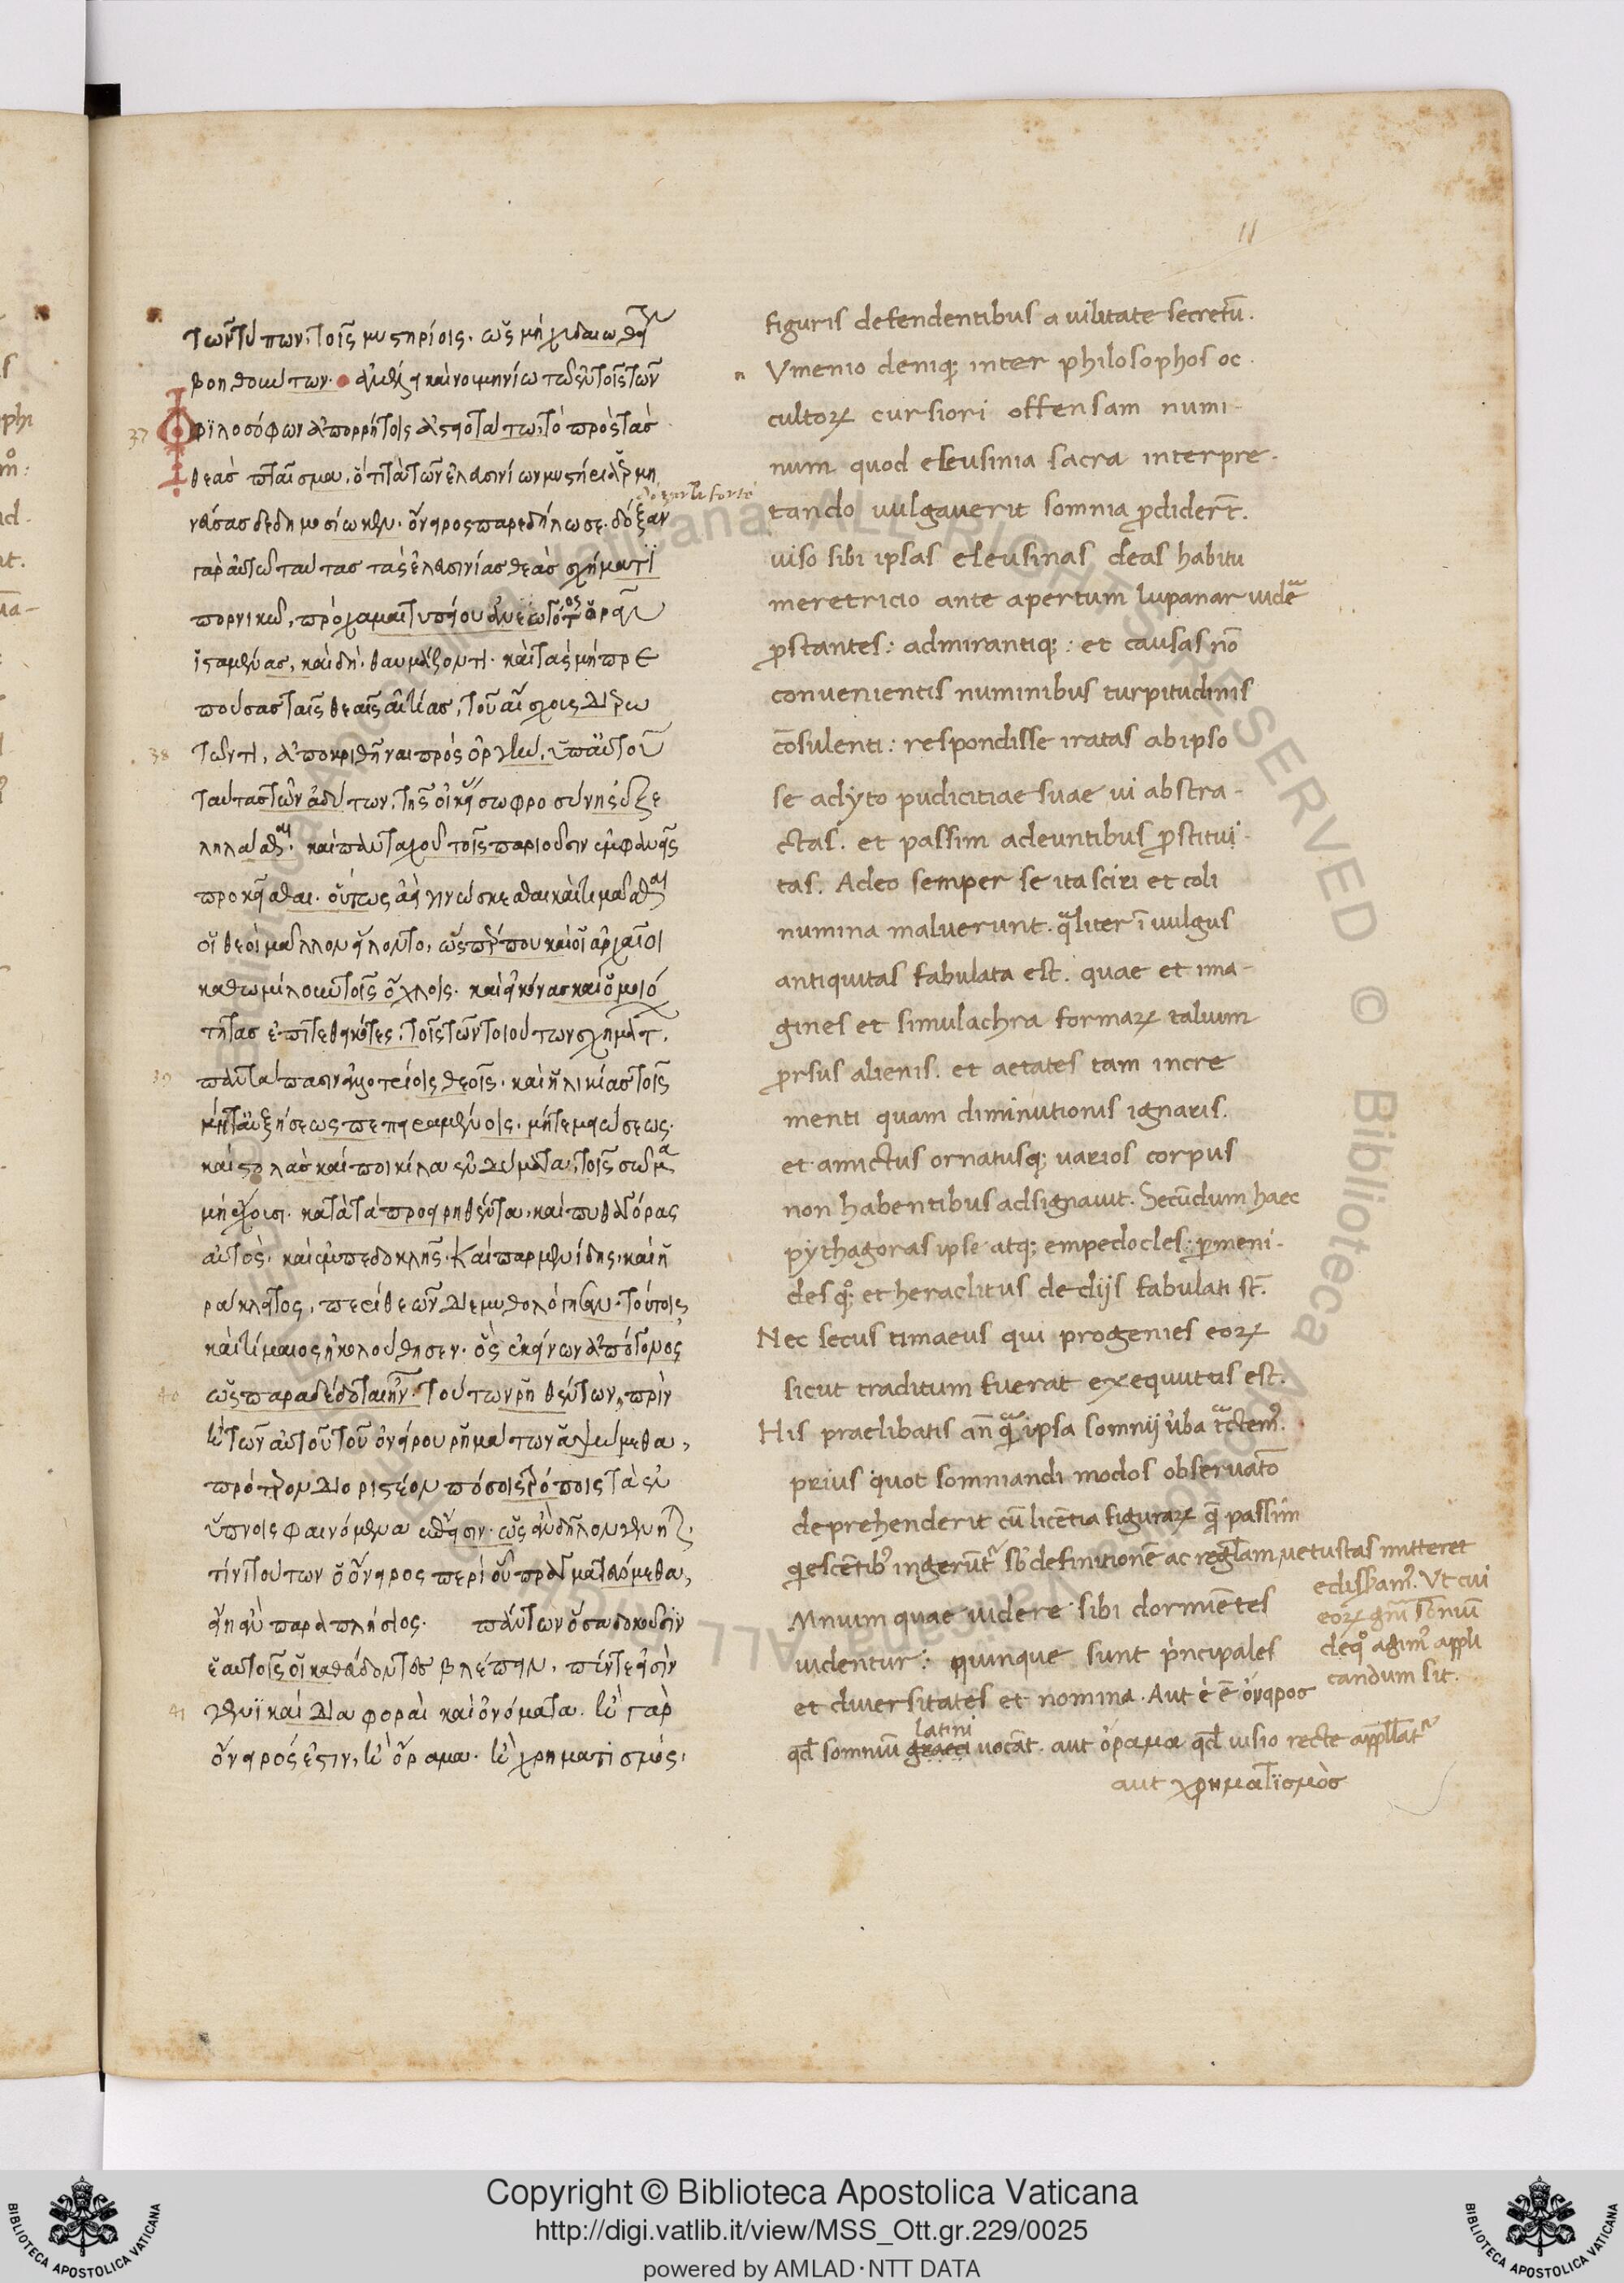 11
τῶν τύπων, τοῖς μυστηρίοις. ὡς μὴ χυδαιωθεῖεν
βοηθούντων. ἀμέλει καὶ νουμηνίω τῶ ἐν τοῖς τῶν
37 φϊλοσόφων ἀπορρήτοις ἀστειοτάτω, τὸ πρὸς τὰσ
θεὰσ πταῖσμα, ὅτι τὰ τῶν ἐλευσινίων μυστήρια ἑρμη
νεύσας δεδημοσίωκεν. ὄνειρος παρεδήλωσε. δόξαν
γὰρ αὐτῶ ταύτασ τὰς ἐλευσινίασ θεὰσ σχήματϊ
πορνικῶ, πρὸ χαμαιτυπείου ἀνεωγότος ὁρᾶν
ἱσταμένας, καὶ δὴ, θαυμάζοντι. καὶ τὰς μὴ πρε
πούσασ ταῖς θεαῖς αἰτίας, τοῦ αἴσχους διερω
38 τῶντι, ἀποκριθῆναι πρὸς ὀργὴν, ὑπ' αὐτοῦ
ταύτας τῶν ἀδύτων, τῆς οἰκείας σωφροσύνης ἐξε
ληλάσθαι. καὶ πανταχοῦ τοῖς παριοῦσιν ἐμφανεῖς
προκεῖσθαι. οὕτως ἀεὶ γινώσκεσθαι καὶ τιμᾶσθαι
οἱ θεοὶ μᾶλλον εἵλοντο, ὥσπερ που καὶ οἱ ἀρχαῖοι
καθωμίλουν τοῖς ὄχλοις. καὶ εἰκόνασ καὶ ὁμοιό
τητασ ἐπιτεθεικότες, τοῖς τῶν τοιούτων σχημάτ.
39 παντάπασιν ἀμοτείοις θεοῖς. καὶ ἡλικίασ τοῖς
μήτ' αὐξήσεως πεπειραμένοις. μήτε μειώσεως.
καὶ στολὰσ καὶ ποικίλα ἐνδύματα, τοῖς σῶμα
μὴ ἔχουσι. κατὰ τὰ προειρηθέντα, καὶ πυθαγόρας
αὐτὸς. καὶ ἐμπεδοκλῆς. καὶ παρμενίδης, καὶ ἡ
ράκλειτος, περὶ θεῶν διεμυθολόγησαν. τούτοις
καὶ τίμαιος ἠκολούθησεν. ὃς ἐκείνων ἀπόγονος
40 ὡς παραδέδοται ἦν. τούτων ῥηθέντων, πρὶν
ἢ τῶν αὐτοῦ τοῦ ὀνείρου ῥημάτων ἁψώμεθα,
πρότερον διοριστέον πόσοις τρόποις τὰ ἐν
ὕπνοις φαινόμενα
τίνι τούτων ὁ ὄνειρος περὶ οὗ πραγματευόμεθα,
εἴη ἂν παραπλήσιος. πάντων ὅσα δοκοῦσϊν
ἑαυτοῖς οἱ καθεύδοντεσ βλέπειν, πέντε εἰσὶν
41 γένη καὶ διαφοραὶ καὶ ὀνόματα. ἢ γὰρ
ὄνειρός ἐστιν, ἢ ὅραμα. ἢ χρηματισμός.
figuris defendentibus a vilitate secretū.
Vmenio deniq; inter philosophos oc
cultoꝝ cursiori offensam numi-
num quod eleusinia sacra interpre-
tando vulgaverit somnia ꝓdiderūt.
viso sibi ipsas eleusinas deas habitu
meretricio ante apertum lupanar vide
ꝓstantes: admirantiq;: et causas nō
convenientis numinibus turpitudinis
cōsulenti: respondisse iratas ab ipso
se adyto pudicitiae suae vi abstra-
ctas. et passim adeuntibus ꝓstitui-
tas. Adeo semper se ita sciri et coli
numina maluerunt. qualiter ī vulgus
antiquitas fabulata est. quae et ima-
gines et simulachra formaꝝ talium
ꝓrsus alienis. et aetates tam incre
menti quam diminutionis ignaris.
et amictus ornatusq; varios corpus
non habentibus adsignavit. Secūdum haec
pythagoras ipse atq; empedocles: ꝑmeni-
des qꝫ; et heraclitus de dijs fabulati st̄.
Nec secus timaeus qui progenies eoꝝ
sicut traditum fuerat exequutus est.
His praelibatis an̄ quā ipsa somnij v̓ba tractem9.
prius quot somniandi modos observatō
deprehenderit cū licētia figuraꝝ q̄ passim
quiescētib9 ingerūtr sb̓ definitionē ac regulam vetustas mitteret
edissāmꝰ. Vt cui
eoꝝ gn̄i sōniū
deqꝫ agimꝰ appli
candum sit.
Mnium quae videre sibi dormiētes
videntur: quinque sunt prīncipales
et diversitates et nomina. Aut ē ē ὄνειροσ
latini
qd̄ somniū graeci vocāt. aut ὅραμα qd̄ visio recte appellatr
aut χρηματϊσμὸσ
Copyright © Biblioteca Apostolica Vaticana
http://digi.vatlib.it/view/MSS_Ott.gr.229/0025
powered by AMLAD·NTT DATA
BIBLIOTECA APOSTOLICA VATICANA
BIBLIOTECA APOSTOLICA VATICANA